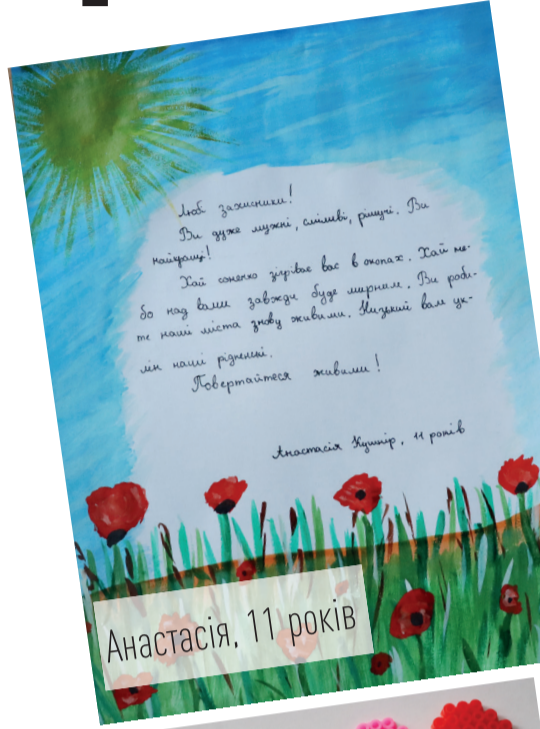 Любі захисники!
Ви дуже мужні, сміливі, рішучі. Ви
найкращі!
Хай сонечко зігріває вас в окопах. Хай не-
бо над вами завжди буде мирним. Ви роби-
те наші міста знову живими. Низький вам ук-
лін наші рідненькі.
Повертайтеся живими!
Анастасія Кушнір, 11 років
Анастасія, 11 років